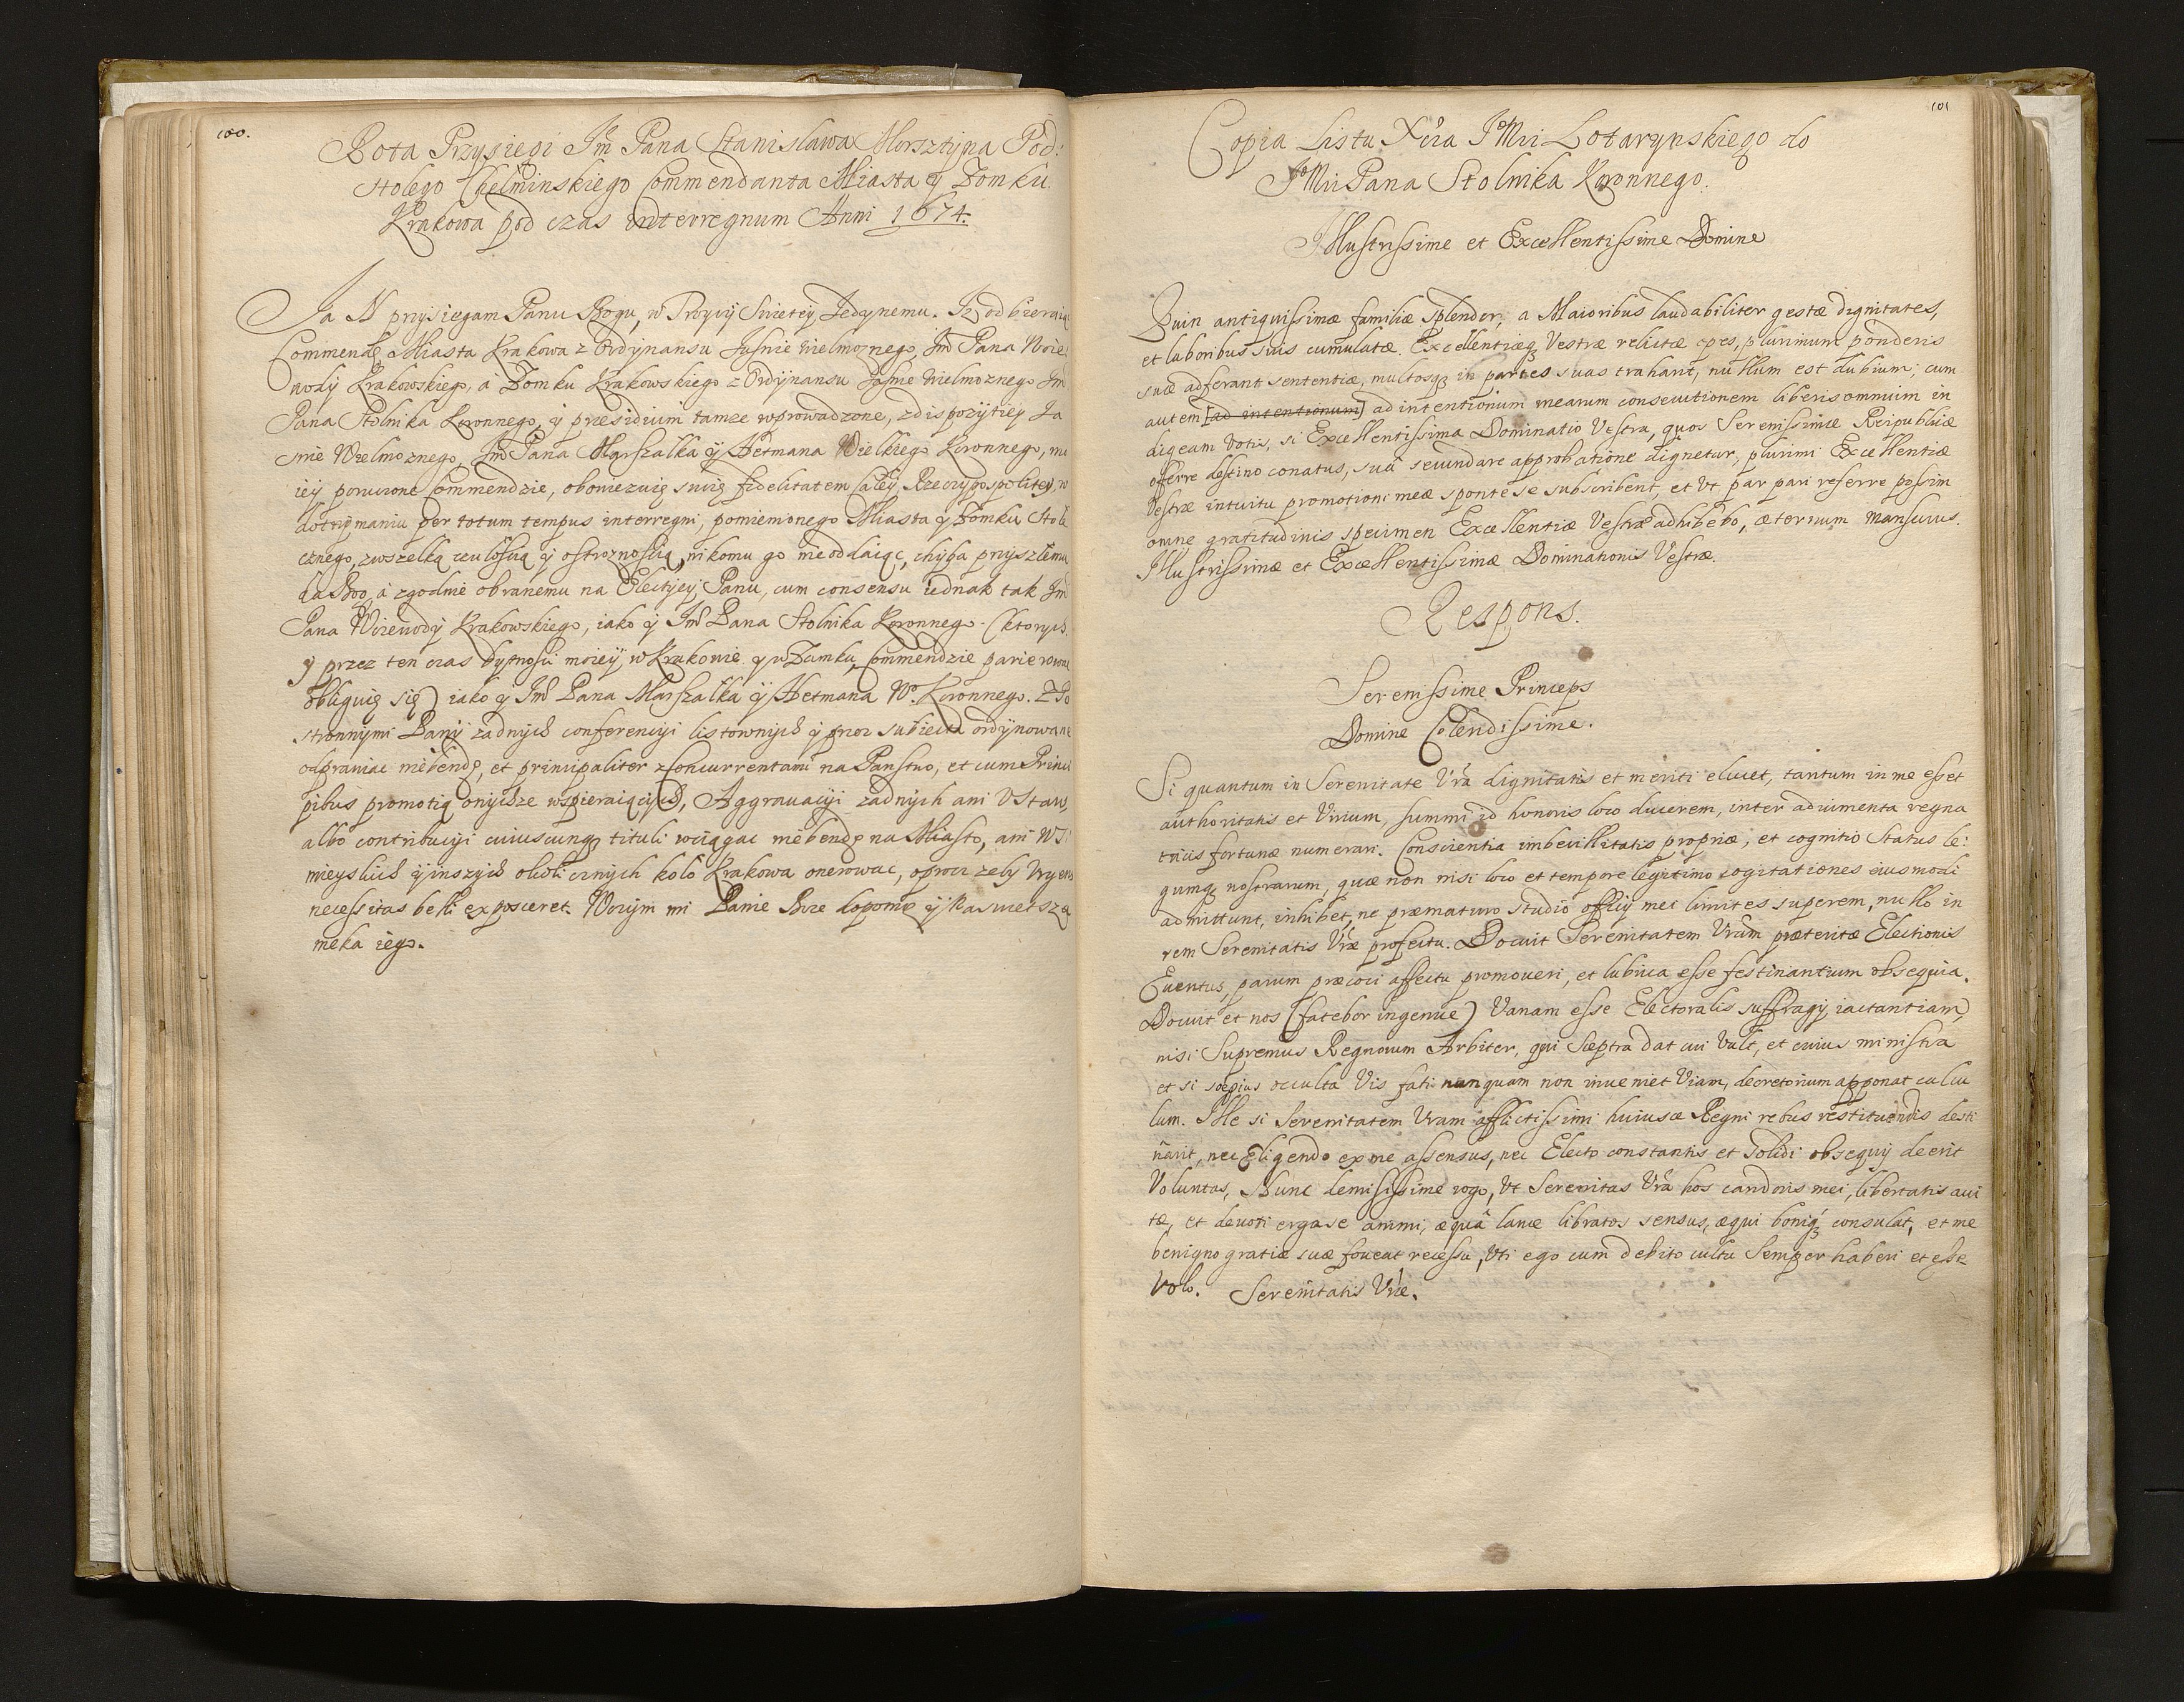 100.
Rota Przysięgi Jm̃ Pana Stanisława Morsztyna Pod:
stolego Chełminskiego Commendanta Miasta ÿ Zomku
Krakowa pod czas interregnum Anni 1674.
Ja N przysięgam Panu Bogu, w Troycy Swietey Jedynemu. Iz odbieraiąc
Commendę Miasta Krakowa z Ordynansu Jasnie Wielmoznego, Jm̃ Pana Woie:
wody Krakowskiego, a Zomku Krakowskiego z Ordynansu Jasnie Wielmoznego Jm̃
Pana Stolnika Koronnego, ÿ præsidium tamze wprowadzone, z dispozÿtiey Ja
snie Wielmoznego, Jm̃ Pana Marszałka ÿ Hetmana Wielkiego Koronnego, mo
iey poruczone Commendzie, obowiezuię swoię fidelitatem Całey Rzeczypospolitey, w
dotrzÿmaniu per totum tempus interregni, pomienionego Miasta ÿ Zomku Stołe
cznego, zwszelką czułoscią ÿ ostroznoscią, nikomu go nieoddaiąc, chÿba przyszłemu
da Boo, a zgodnie obranemu na Electÿey, Panu, cum consensu iednak tak Jm̃
Pana Woiewody Krakowskiego, iako ÿ Jm̃ Pana Stolnika Koronnego (ktorych
ÿ przez ten czas bytnosci moiey, w Krakowie ÿ w Zamku, Commendzie parierowac
obliguię się) iako ÿ Jm̃ Pana Marszałka ÿ Hetmana Wo. Koronnego. Z Po
stronnymi Pany zadnych conferencyi listownych ÿ przez subiecta ordynowane
odprawiac niebendę, et principaliter z Concurrentami na Panstwo, et cum Princi
pibus promotią onychze wspieraiącÿch, Aggravacyi zadnych ani Ustaw,
albo contribucyi cuiuscunq; tituli wciągac niebendę na Miasto, ani Wsi
mieyskich ÿ inszych okolicznych koło Krakowa onerowac, oprocz zeby Urgens
necessitas belli exposceret. W czym mi Panie Boze dopomoz ÿ Niewinna Mę
ka iego.
101
Copia Listu Xcia Jo Mci Lotarynskiego do
Jo Mci Pana Stolnika Koronnego.
Illustrissime et Excellentissime Domine
Quin antiquissimæ familiæ splendor, a Maioribus laudabiliter gestæ dignitates,
et laboribus suis cumulatæ. Excellentiæq; Vestræ relictæ opes, plurimum ponderis
suæ adferant sententiæ, multosq; in partes suas trahant, nullum est dubium; cum
autem [ad intentionum] ad intentionum mearum consecutionem liberis omnium in
digeam votis, si Excellentissima Dominatio Vestra, quos Serenissimæ Reipublicæ
offerre destino conatus, suâ secundare approbatione dignetur, plurimi Excellentiæ
Vestræ intuitu promotioni meæ sponte se subscribent, et Vt par pari referre possim
omne gratitudinis specimen Excellentiæ Vestræ adhibebo, æternum mansurus.
Illustrissimæ et Excellentissimæ Dominationis Vestræ.
Respons.
Serenissime Princeps
Domine Colendissime.
Si quantum in Serenitate Vrã dignitatis et meriti elucet, tantum in me esset
authoritatis et Virium, summi id honoris loco ducerem, inter adiumenta regna
tricis fortunæ numerari. Conscientia imbecillitatis propriæ, et cognitio Status le:
gumq; nostrarum, quæ non nisi loco et tempore legitimo cogitationes eiusmodi
admittunt, inhibet, ne præmaturo studio officij mei limites superem, nullo in
rem Serenitatis Vræ profectu. Docuit Serenitatem Vram præteritæ Electionis
Euentus, parum præcoci affectu promoueri, et lubrica esse festinantium obsequia.
Docuit et nos (fatebor ingenue) Vanam esse Electoralis suffragij iactantiam,
nisi Supremus Regnorum Arbiter, qui Sceptra dat cui Vult, et cuius ministra
et si sæpius occulta Vis fati nunquam non inueniet Viam, decretorium apponat calcu
lum. Ille si Serenitatem Vram afflictissimi huiusce Regni rebus restituendis desti
nârit, nec Eligendo ex me assensus, nec Electo constantis et solidi obsequij deerit
Voluntas, Nunc demississime rogo, Vt Serenitas Vrã hos candoris mei, libertatis aui
tæ, et deuoti erga se animi, æquâ lance libratos sensus, æqui boniq; consulat, et me
benigno gratiæ suæ foueat recessu, Vti ego cum debito cultu Semper haberi et esse
Volo. Serenitatis Vræ.